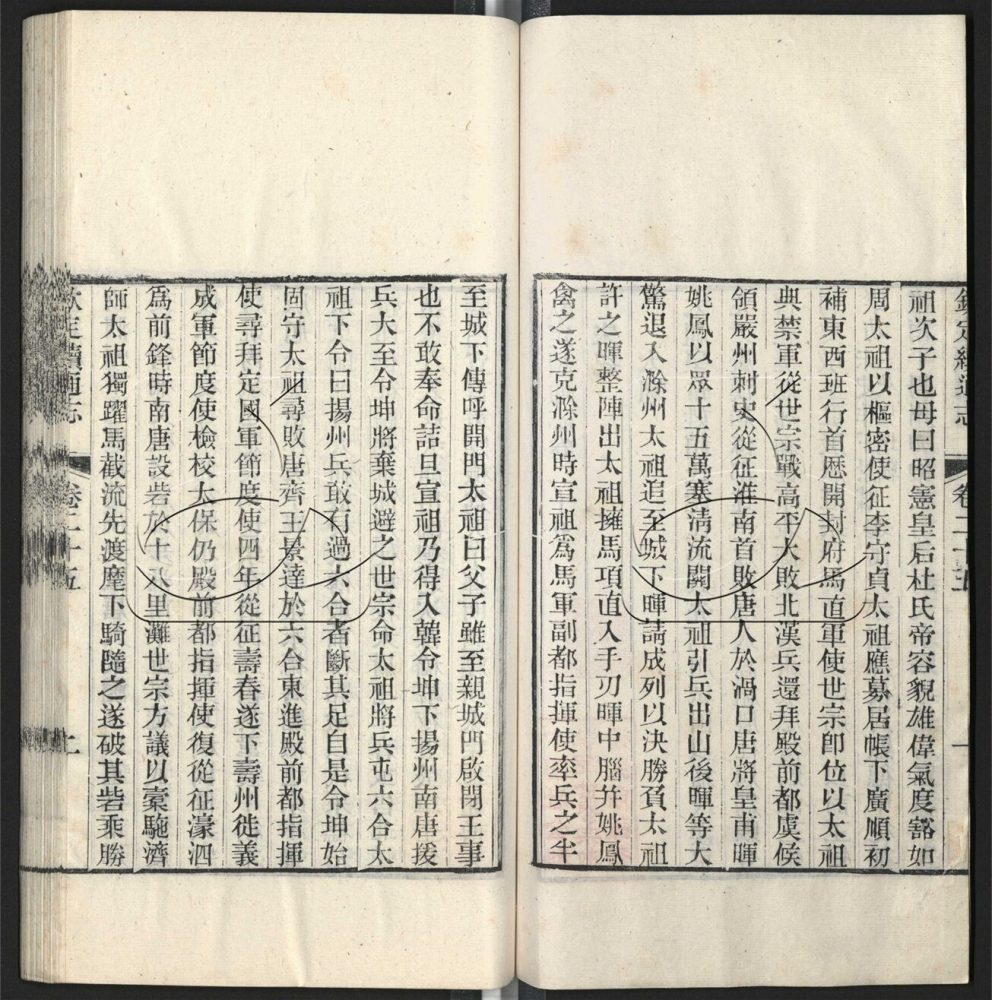 欽定續通志 卷二十五 一
祖次子也母曰昭憲皇后杜氏帝容貌雄偉氣度豁如
周太祖以樞密使征李守貞太祖應募居帳下廣順初
補東西班行首歷開封府馬直軍使世宗即位以太祖
典禁軍從世宗戰高平大敗北漢兵還拜殿前都虞候
領嚴州刺史從征淮南首敗唐人於渦口唐將皇甫暉
姚鳳以眾十五萬塞清流關太祖引兵出山後暉等大
驚退入滁州太祖追至城下暉請成列以決勝負太祖
許之暉整陣出太祖擁馬項直入手刃暉中腦并姚鳳
禽之遂克滁州時宣祖爲馬軍副都指揮使率兵之半
至城下傳呼開門太祖曰父子雖至親城門啟閉王事
也不敢奉命詰旦宣祖乃得入韓令坤下揚州南唐援
兵大至令坤將棄城避之世宗命太祖將兵屯六合太
祖下令曰揚州兵敢有過六合者斷其足自是令坤始
固守太祖尋敗唐齊王景達於六合東進殿前都指揮
使尋拜定國軍節度使四年從征壽春遂下壽州徙義
成軍節度使檢校太保仍殿前都指揮使復從征濠泗
爲前鋒時南唐設砦於十八里灘世宗方議以橐駞濟
師太祖獨躍馬截流先渡麾下騎隨之遂破其砦乘勝
欽定續通志 卷二十五